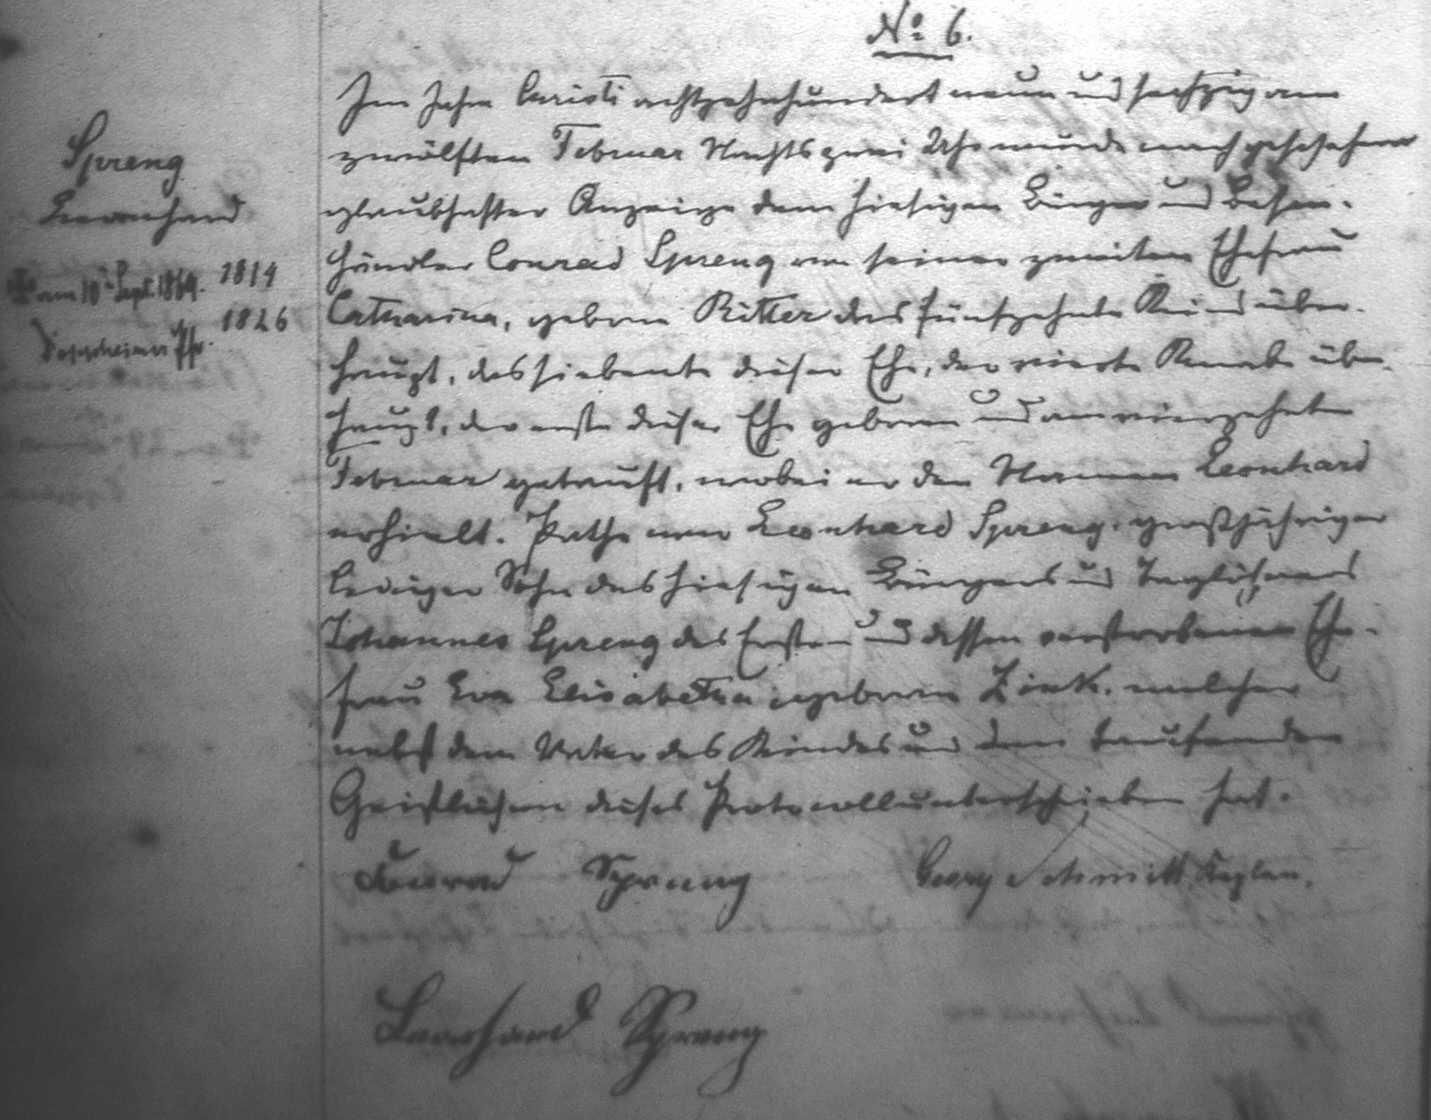 No 6.
Im Jahre Christi achtzehnhundert neun und sechzig am
zwölften Februar Nachts zwei Uhr wurde nach geschehener
glaubhafter Anzeige dem hiesigen Bürger und
händler Conrad Spreng von seiner zweiten Ehefrau
Catharina, geborne Ritter das fünfzehnte Kind über-
haupt, das siebente dieser Ehe, der vierte Knabe über-
haupt, der erste dieser Ehe geboren und am vierzehnten
Februar getauft, wobei er den Namen Leonhard
erhielt. Pathe war Leonhard Spreng, großjähriger
lediger Sohn des hiesigen Bürgers und Taglöhners
Johannes Spreng des Ersten und dessen verstorbenen Ehe-
frau Eva Elisabetha geborne Zink, welcher
nebst dem Vater des Kindes und dem taufenden
Geistlichen dieses Protocoll unterschrieben hat.
Conrad Spreng
Georg Schmitt Kaplan.
Leonhard Spreng
Spreng
Leonhard
am 10t Sept. 1869. 1814
1826
Pfr.